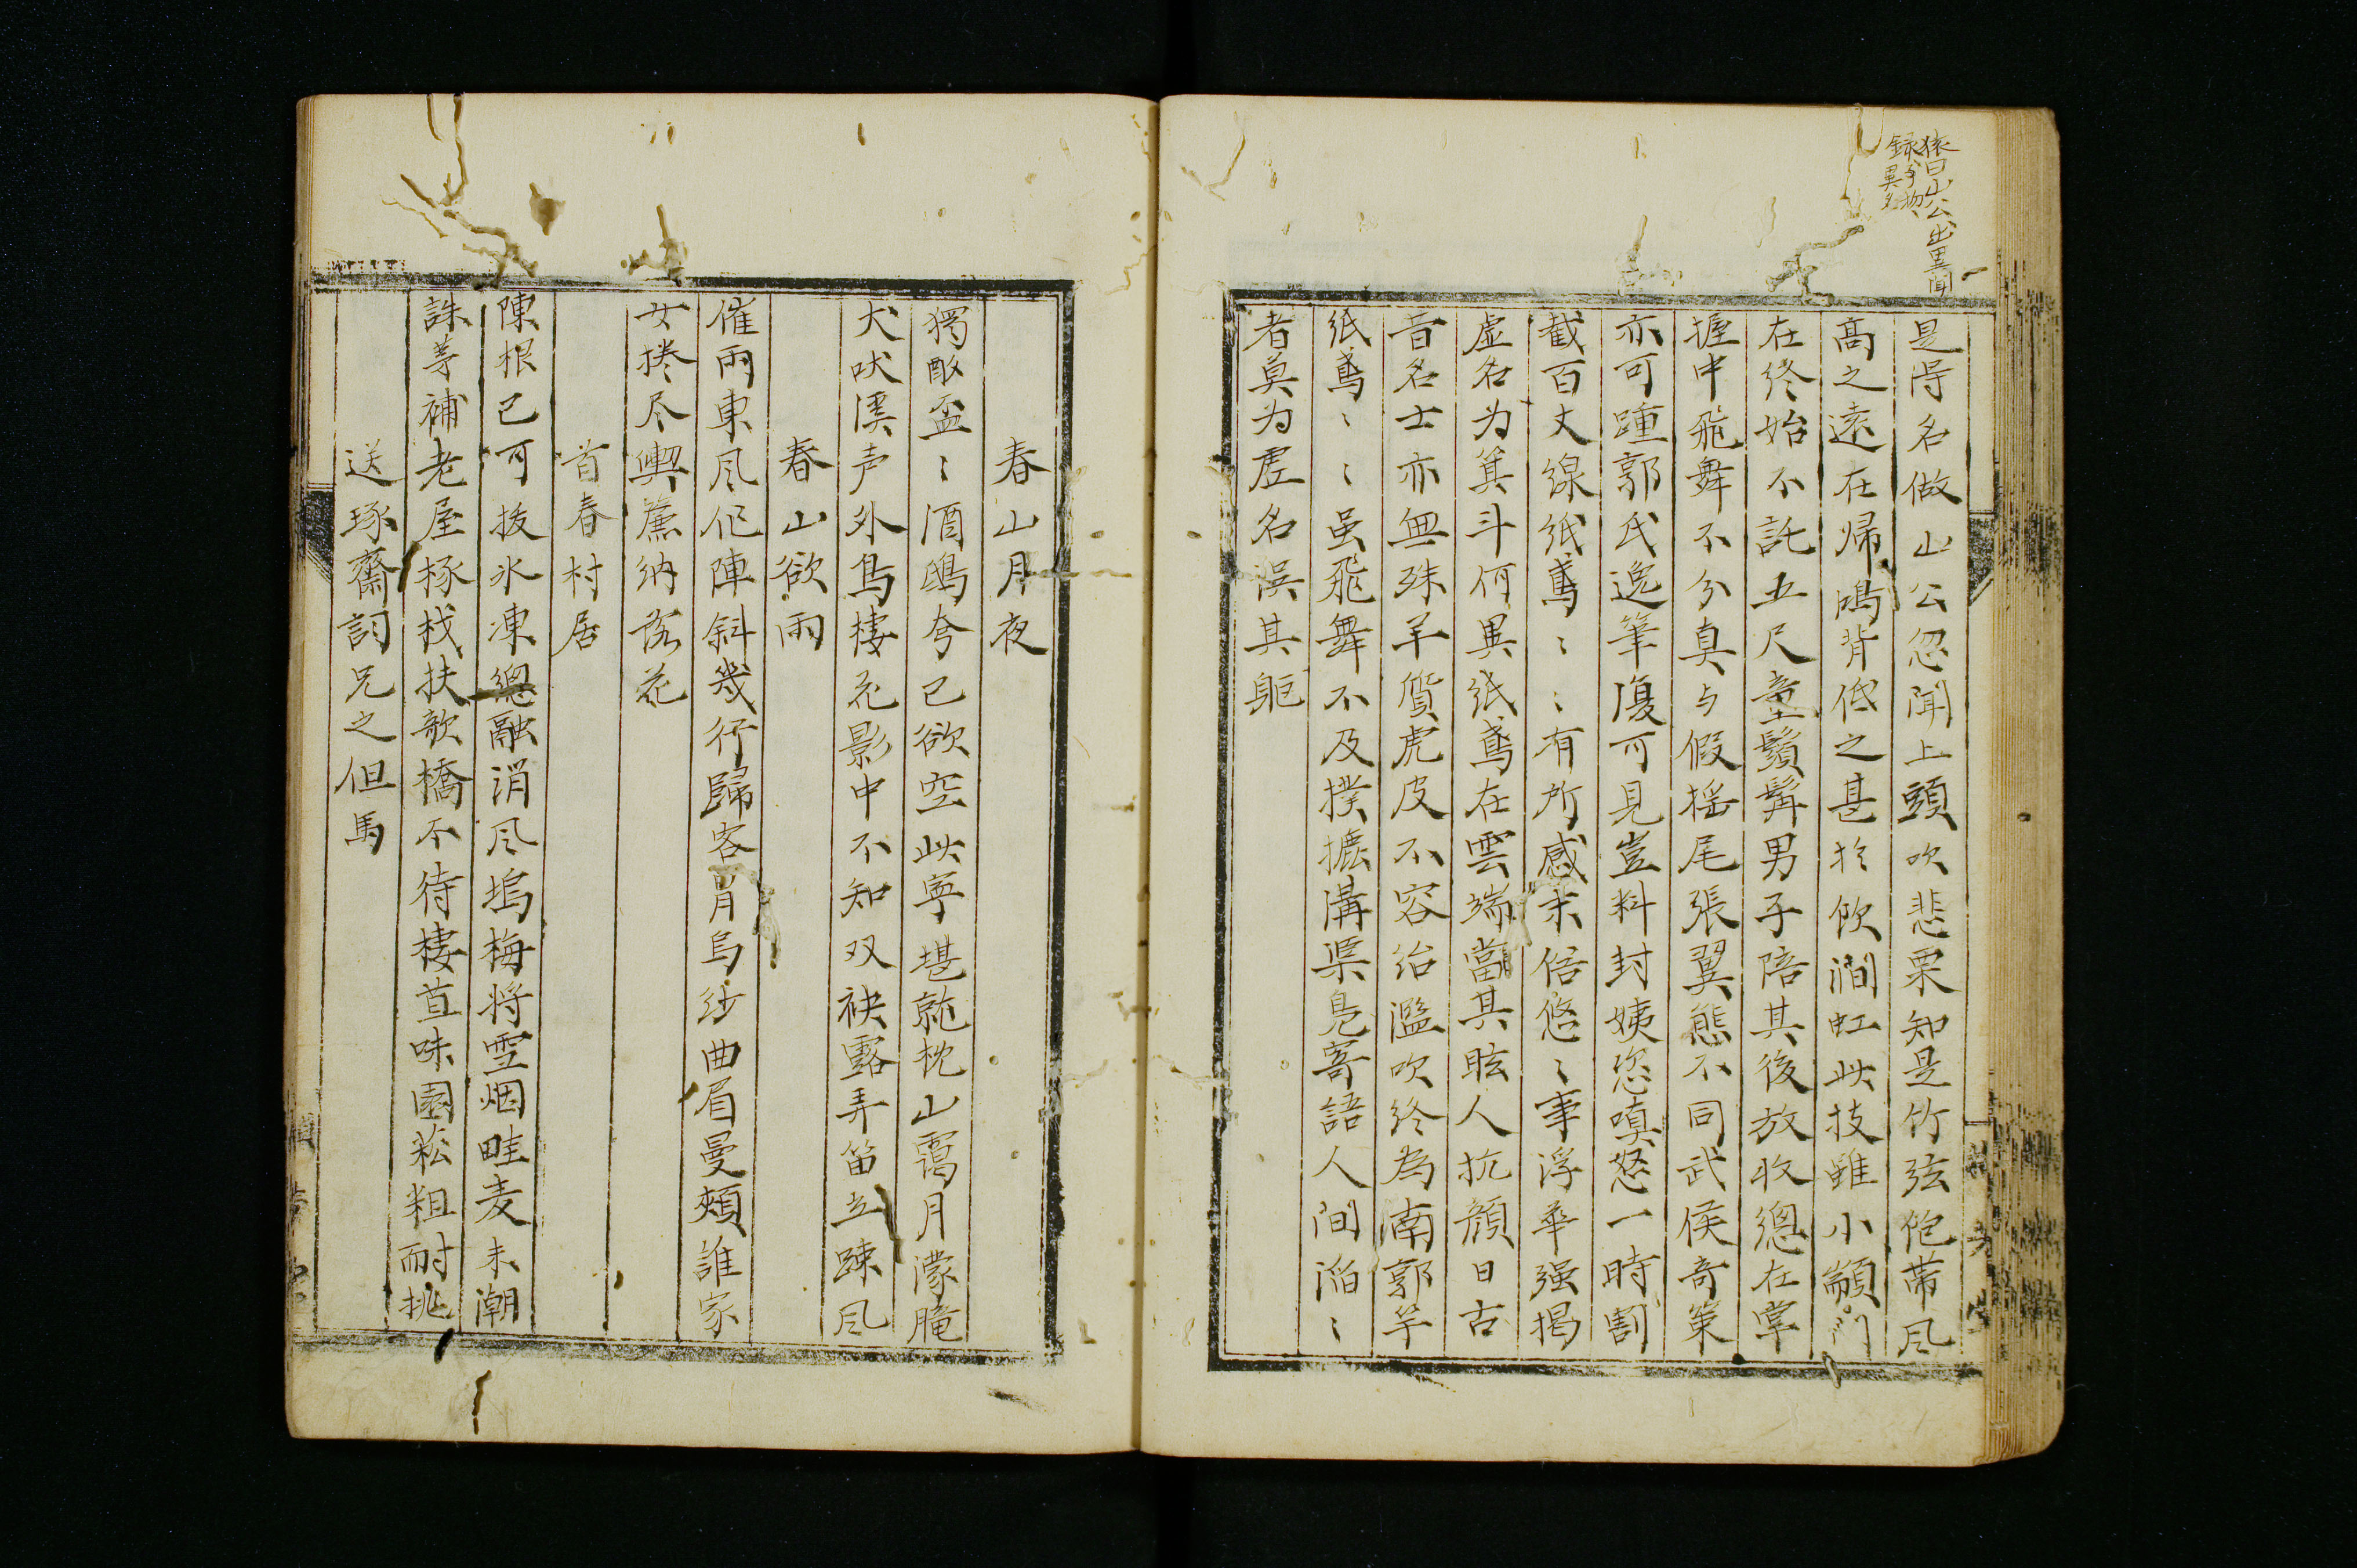 猿曰山公出異聞
録事物
異名
是得名做山公忽聞上頭吹悲栗知是竹弦飽帯风
高之遠在帰鴻背低之甚於飲澗虹此技雖小顓門
在終始不託五尺童鬚髯男子陪其後放收總在掌
握中飛舞不分真与假揺尾張翼態不同武侯奇策
亦可踵郭氏逸筆復可見豈料封姨恣嗔怒一時割
截百丈線紙鳶〻〻有所感末俗悠〻事浮華强揭
虚名为箕斗何異紙鳶在雲端當其眩人抗顔日古
昔名士亦無殊羊質虎皮不容紿濫吹终為南郭竽
紙鳶〻〻虽飛舞不及撲攎溝渠鳧寄語人间滔〻
者莫为虚名误其躯
春山月夜
獨酌盃〻酒鴟夸已欲空此寧堪就枕山靄月濛朧
犬吠溪声外鳥棲花影中不知双袂露弄笛立踈风
春山欲雨
催雨東风化陣斜幾行歸客肖烏纱曲眉曼頰誰家
女捲尽輿簾納落花
首春村居
陳根已可拔氷凍總融消风塢梅将雪烟畦麦未潮
誅茅補老屋椓杙扶欹橋不待棲苴味園菘粗耐挑
送琢齋詞兄之但馬